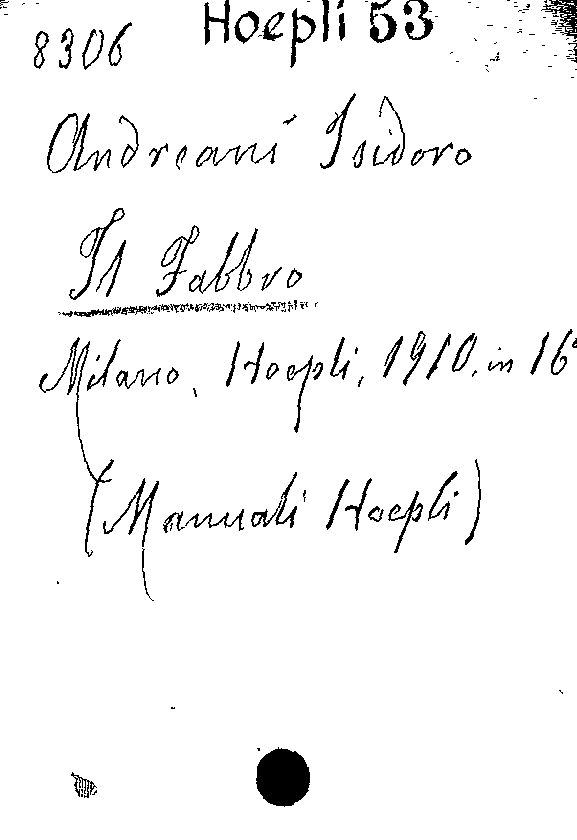 8306 Hoepli 53
Andreani Isidoro
Il Fabbro
Milano, Hoepli, 1910, in 16°
(Manuali Hoepli)